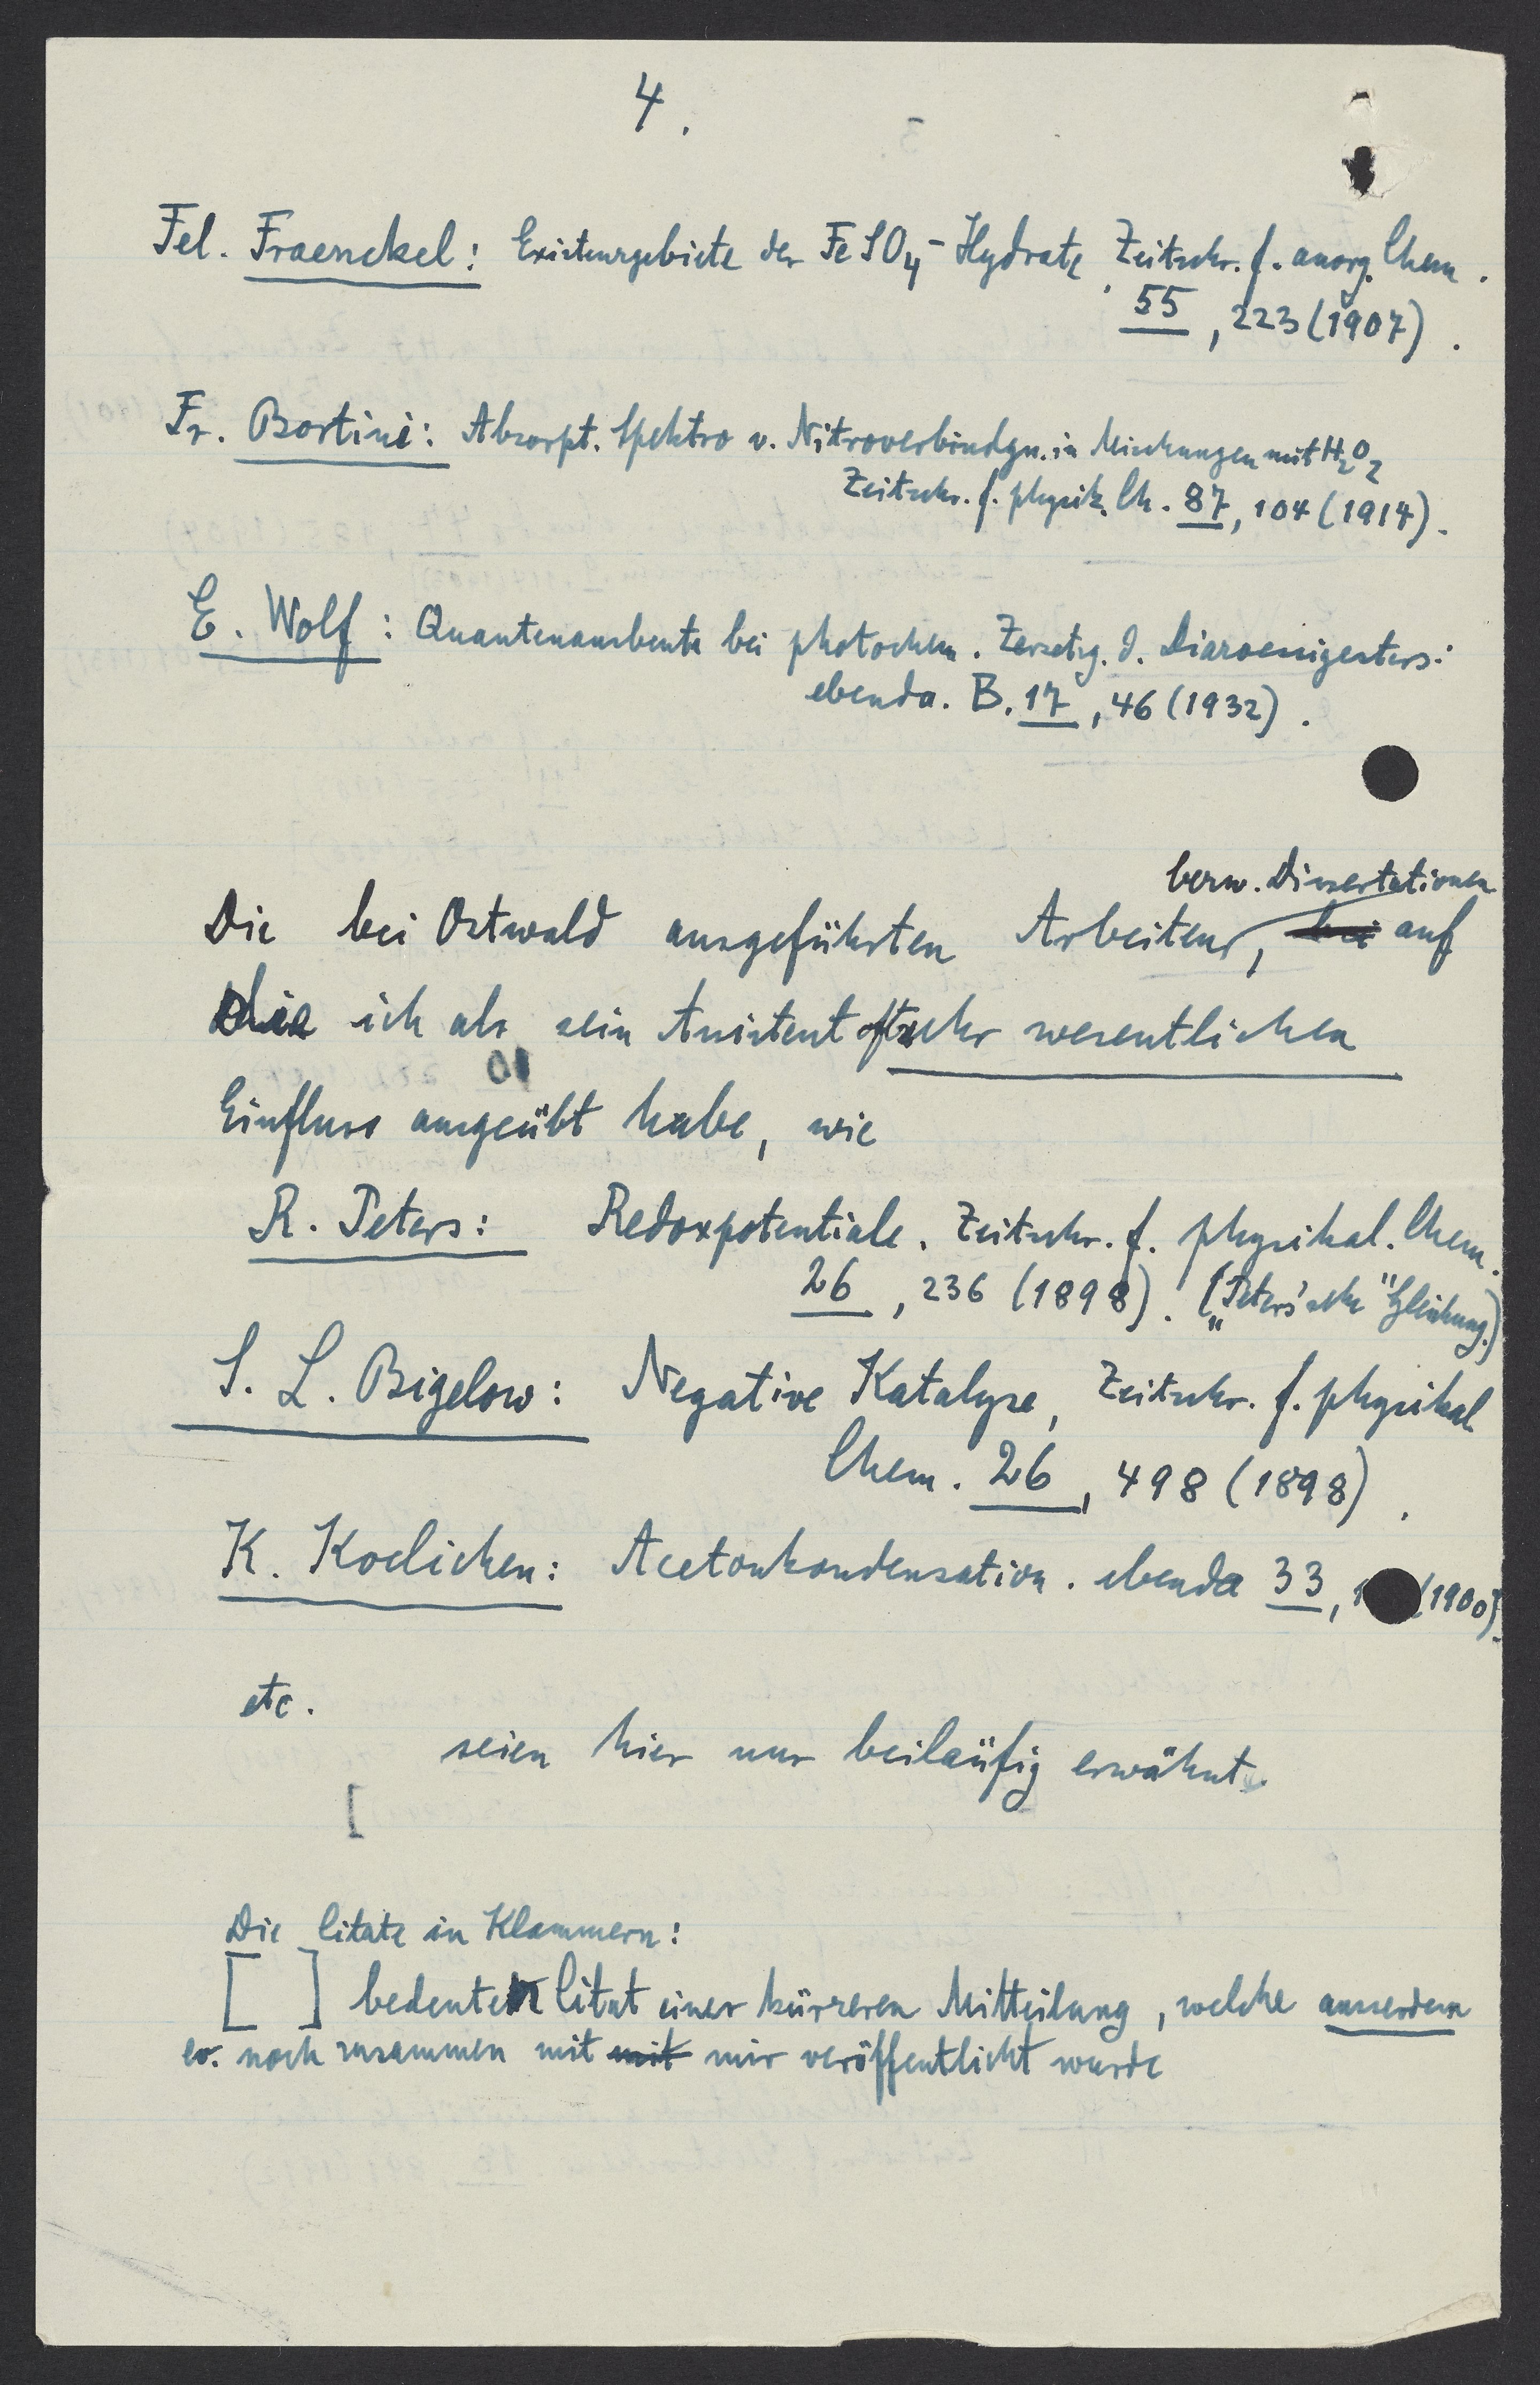 4.
Fel. Fraenckel: Existenzgebiete der FeSO4-Hydrate. Zeitschr. f. anorg. Chem.
55, 223 (1907).
Fr. Bortini: Absorpt. Spektra v. Nitroverbindgn. in Mischungen mit H2O2
Zeitschr. f. physik. Ch. 87, 104 (1914).
E. Wolf: Quantenausbeute bei photochem. Zersetzg. d. Diazoessigesters:
ebenda. B. 17, 46 (1932).
bezw. Dissertationen
Die bei Ostwald ausgeführten Arbeiten, bei auf
die ich als sein Assistent oft sehr wesentlichen
Einfluss ausgeübt habe, wie
R. Peters: Redoxpotentiale. Zeitschr. f. physikal. Chem.
26, 236 (1898). („Peters'sche" Gleichung.)
S. L. Bigelow: Negative Katalyse, Zeitschr. f. physikal
Chem. 26, 498 (1898).
K. Koelichen: Acetonkondensation. ebenda 33, 1 (1900).
etc.
seien hier nur beiläufig erwähnt.
[
Die Citate in Klammern:
[ ] bedeuten Citat einer kürzeren Mitteilung, welche ausserdem
ev. noch zusammen mit mit mir veröffentlicht wurde